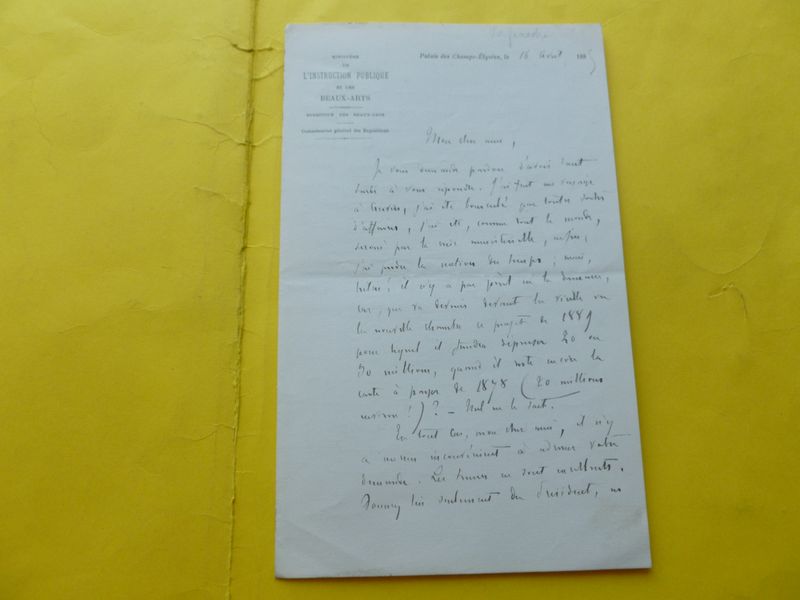 MINISTÈRE
DE
L'INSTRUCTION PUBLIQUE
ET DES
BEAUX-ARTS
DIRECTION DES BEAUX-ARTS
Commissariat général des Expositions
Palais des Champs-Élysées, le 16 avril 1885
Mon cher ami,
Je vous demande pardon d'avoir tant
tardé à vous répondre. J'ai fait un voyage
à, j'ai été bousculé par toutes sortes
d'affaires, j'ai été, comme tout le monde,
par la crise ministérielle, enfin,
j'ai perdu la notion du temps; mais,
hélas! il n'y a pas péril en la demeure,
car, que va devenir devant la vieille ou
la nouvelle chambre ce projet de 1889
pour lequel il faudra dépenser 20 ou
30 millions, quand il reste encore la
carte à payer de 1878 (20 millions
environ!)? — Nul ne le sait.
En tout cas, mon cher ami, il n'y
a aucun inconvénient à adresser votre
demande. Les termes en sont excellents.
seulement du Président, ou